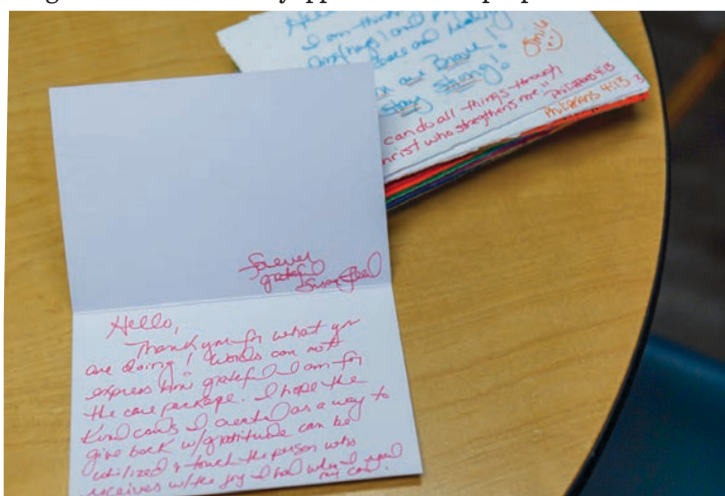 Hello
I am
and
and Healing
are Brave!
Stay Strong!
Smile
can do all things through
Christ who strengthens me"
Philippians 4:13
Philippians 4:13
forever
grateful
Hello,
Thank you for what you
are doing! Words can not
express how grateful I am for
the care package. I hope the
Kind cards I created as a way to
give back w/gratitude can be
utilized & touch the person who
receives w/the joy I had when I
my card.